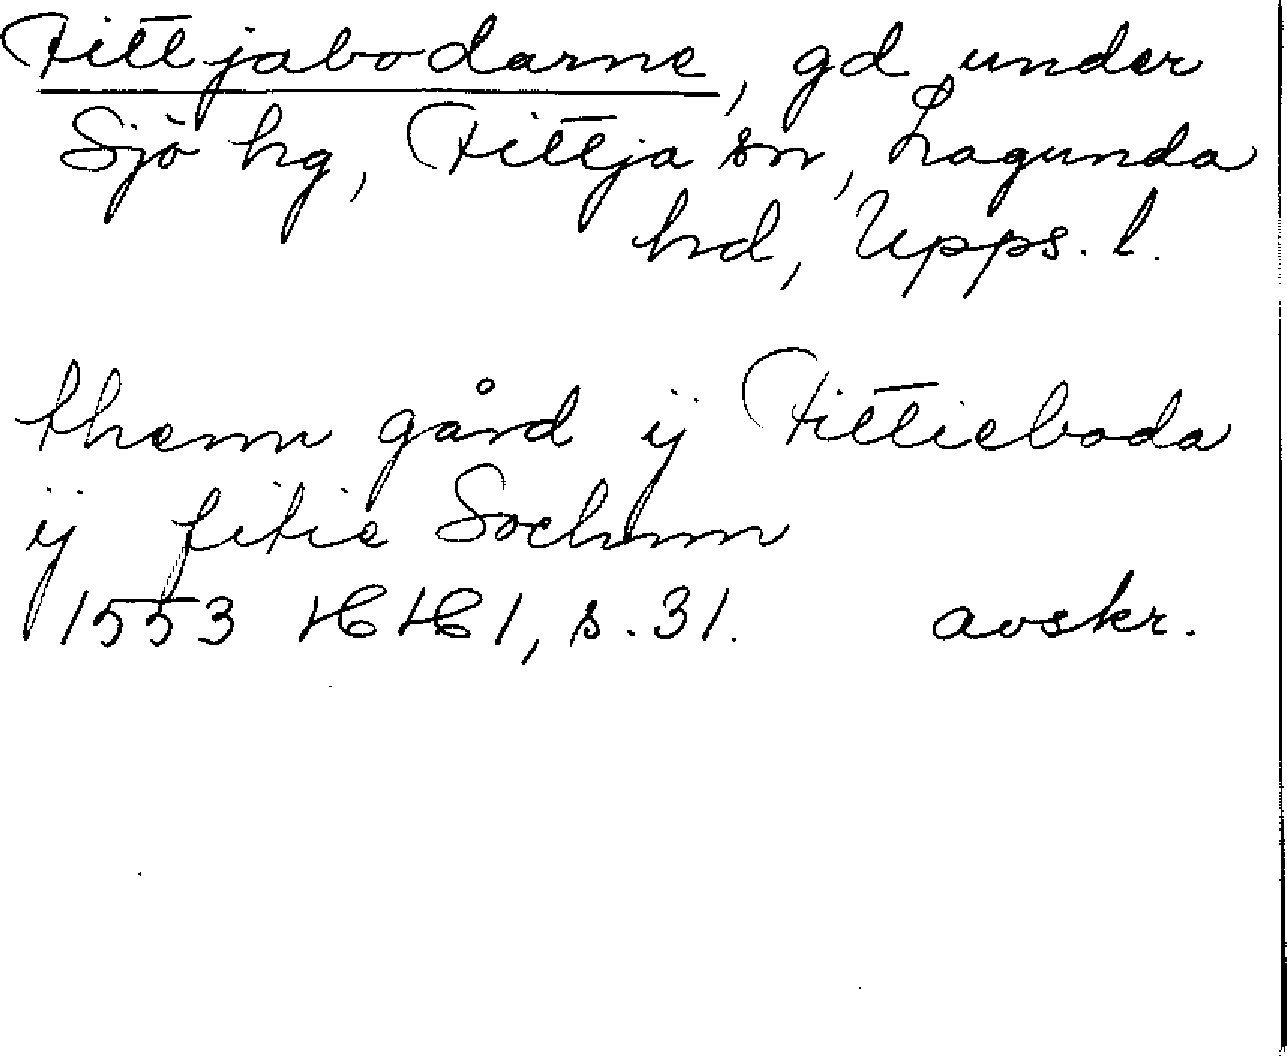 Fittjabodarne, gd under
Sjö hg, Fittja sn, Lagunda
hd, Upps. l.
themn gård ij Fittieboda
ij fitie Sochnn
1553 HH 1, s. 31. avskr.